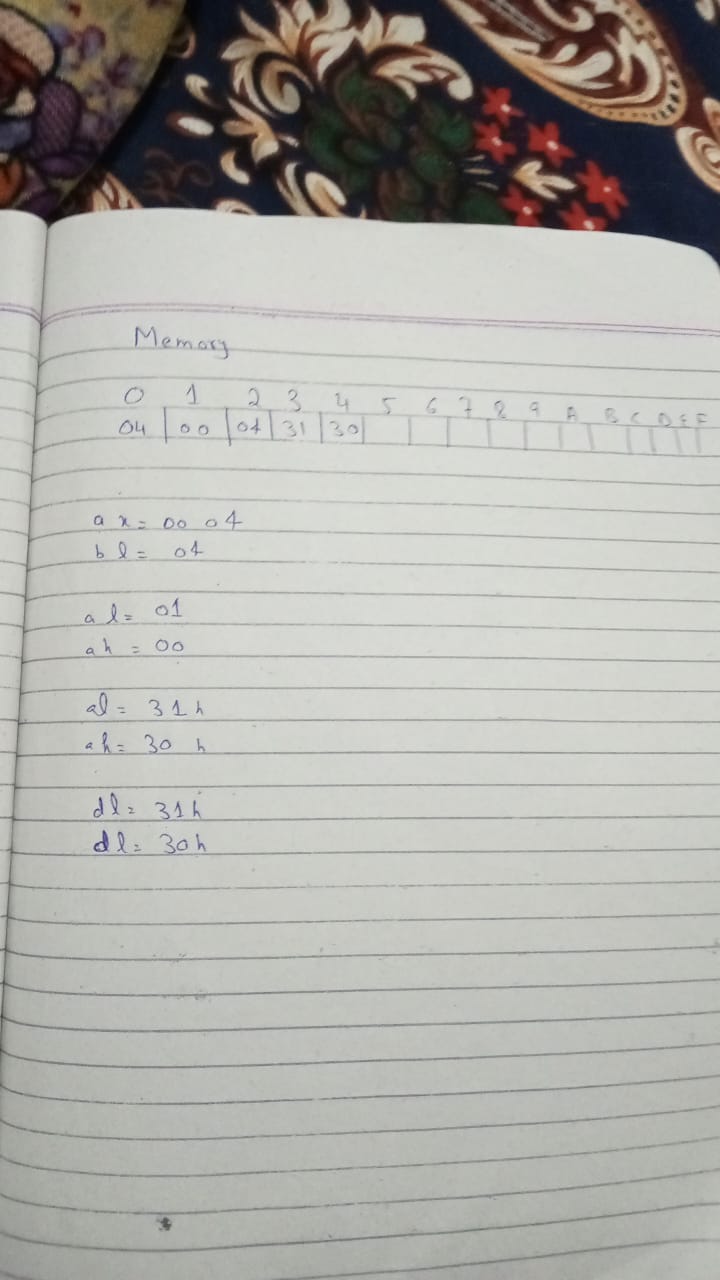 Memory
0 1 2 3 4 5 6 7 8 9 A B C D E F
04 00 04 31 30
ax = 00 04
bl = 04
al = 01
ah = 00
al = 31h
ah = 30 h
dl = 31h
dl = 30h